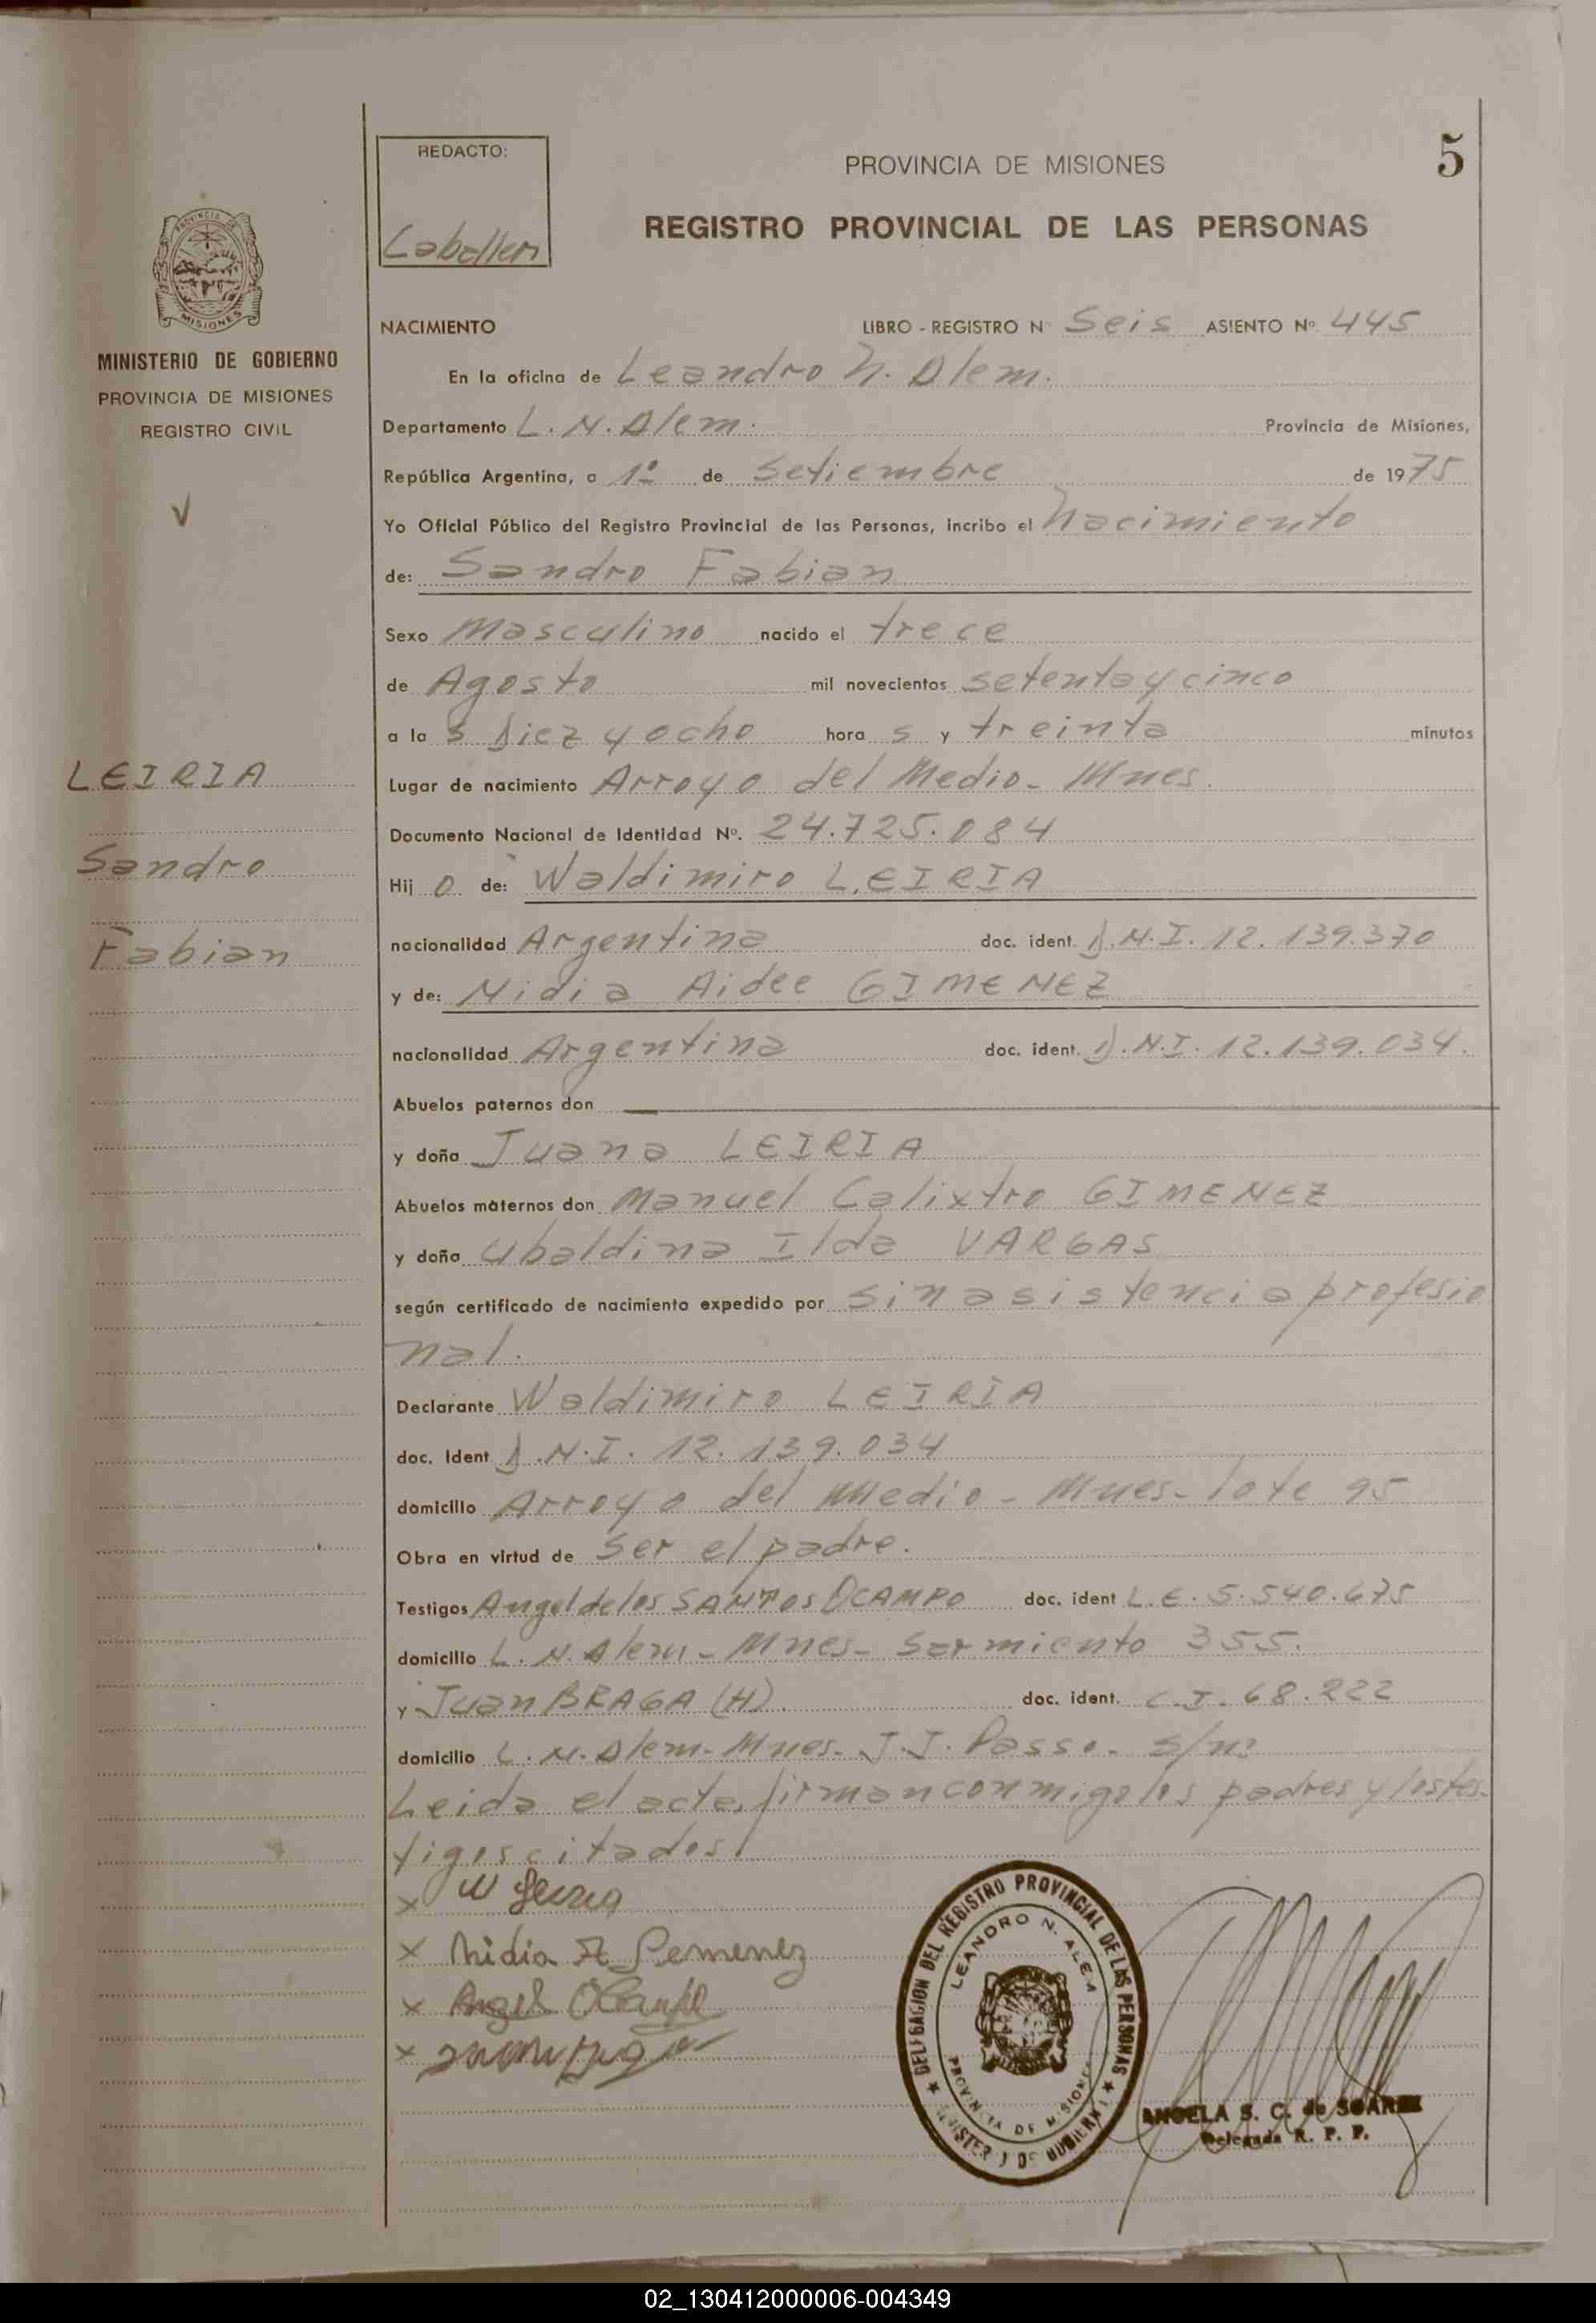 5
REDACTO:
Caballero
PROVINCIA DE MISIONES
REGISTRO PROVINCIAL DE LAS PERSONAS
PROVINCIA DE
MISIONES
MINISTERIO DE GOBIERNO
PROVINCIA DE MISIONES
REGISTRO CIVIL
LEIRIA
Sandro
Fabian
NACIMIENTO LIBRO - REGISTRO Nº Seis ASIENTO Nº. 445
En la oficina de Leandro N. Alem.
Departamento L. N. Alem. Provincia de Misiones,
República Argentina, a 1º de Setiembre de 1975
Yo Oficial Público del Registro Provincial de las Personas, incribo el Nacimiento
de: Sandro Fabian
Sexo Masculino nacido el trece
de Agosto mil novecientos setenta y cinco
a la s Diez y ocho hora s y treinta minutos
Lugar de nacimiento Arroyo del Medio - Mnes.
Documento Nacional de Identidad Nº. 24.725.084
Hij o de: Waldimiro LEIRIA
nacionalidad Argentina doc. ident. D.N.I. 12.139.370
y de: Nidia Aidee GIMENEZ
nacionalidad Argentina doc. ident. D.N.I. 12.139.034.
Abuelos paternos don
y doña Juana LEIRIA
Abuelos maternos don Manuel Calixtro GIMENEZ
y doña Ubaldina Ilda VARGAS
según certificado de nacimiento expedido por sin asistencia profesio
nal.
Declarante Waldimiro LEIRIA
doc. Ident D.N.I. 12.139.034
domicilio Arroyo del Medio - Mnes - lote 95
Obra en virtud de ser el padre.
Testigos Angel de los SANTOS OCAMPO doc. ident L.E. 5.540.675
domicilio L. N. Alem - Mnes - Sarmiento 355.
y Juan BRAGA (H) doc. ident. C.I. 68.222
domicilio L. N. Alem - Mnes. J.J. Passo - s/nº
Leida el acta, firman conmigo los padres y los tes-
tigos citados
x W Leiria
x Nidia A Gemenez
x Angel Ocampo
x
DELEGACION DEL REGISTRO PROVINCIAL DE LAS PERSONAS
LEANDRO N. ALEM
PROVINCIA DE MISIONES
MINISTERIO DE GOBIERNO
ANGELA S. C. de SOAREZ
Delegada R. P. P.
02_130412000006-004349